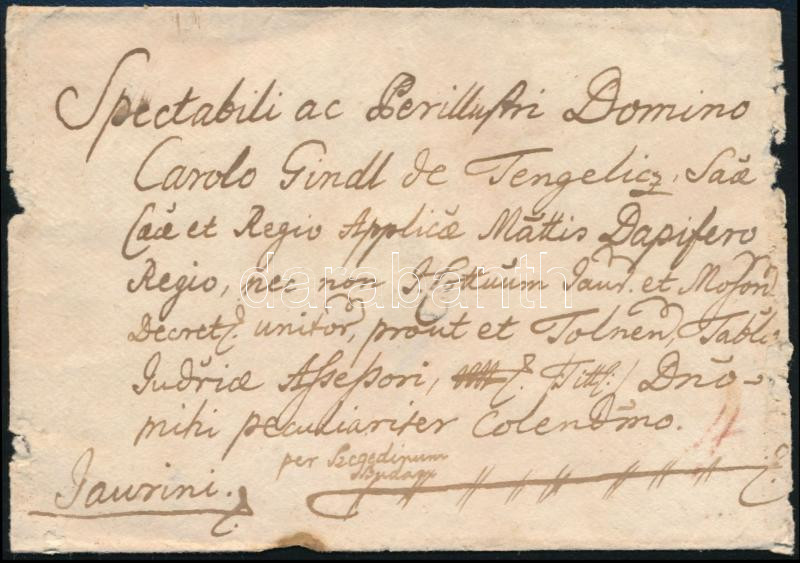 Spectabili ac Perillustri Domino
Carolo Gindl de Tengelicz, Saæ
Caæ et Regio Applicæ Mattis Dapifero
Regio, nec non Jaur. et Moson
Decret. unitor, prout et Tolnen, Tablæ
Judriæ Assessori, Titt. Dno
mihi peculiariter Colendmo.
per Szegedinum
Budam
Jaurini.
darabanth